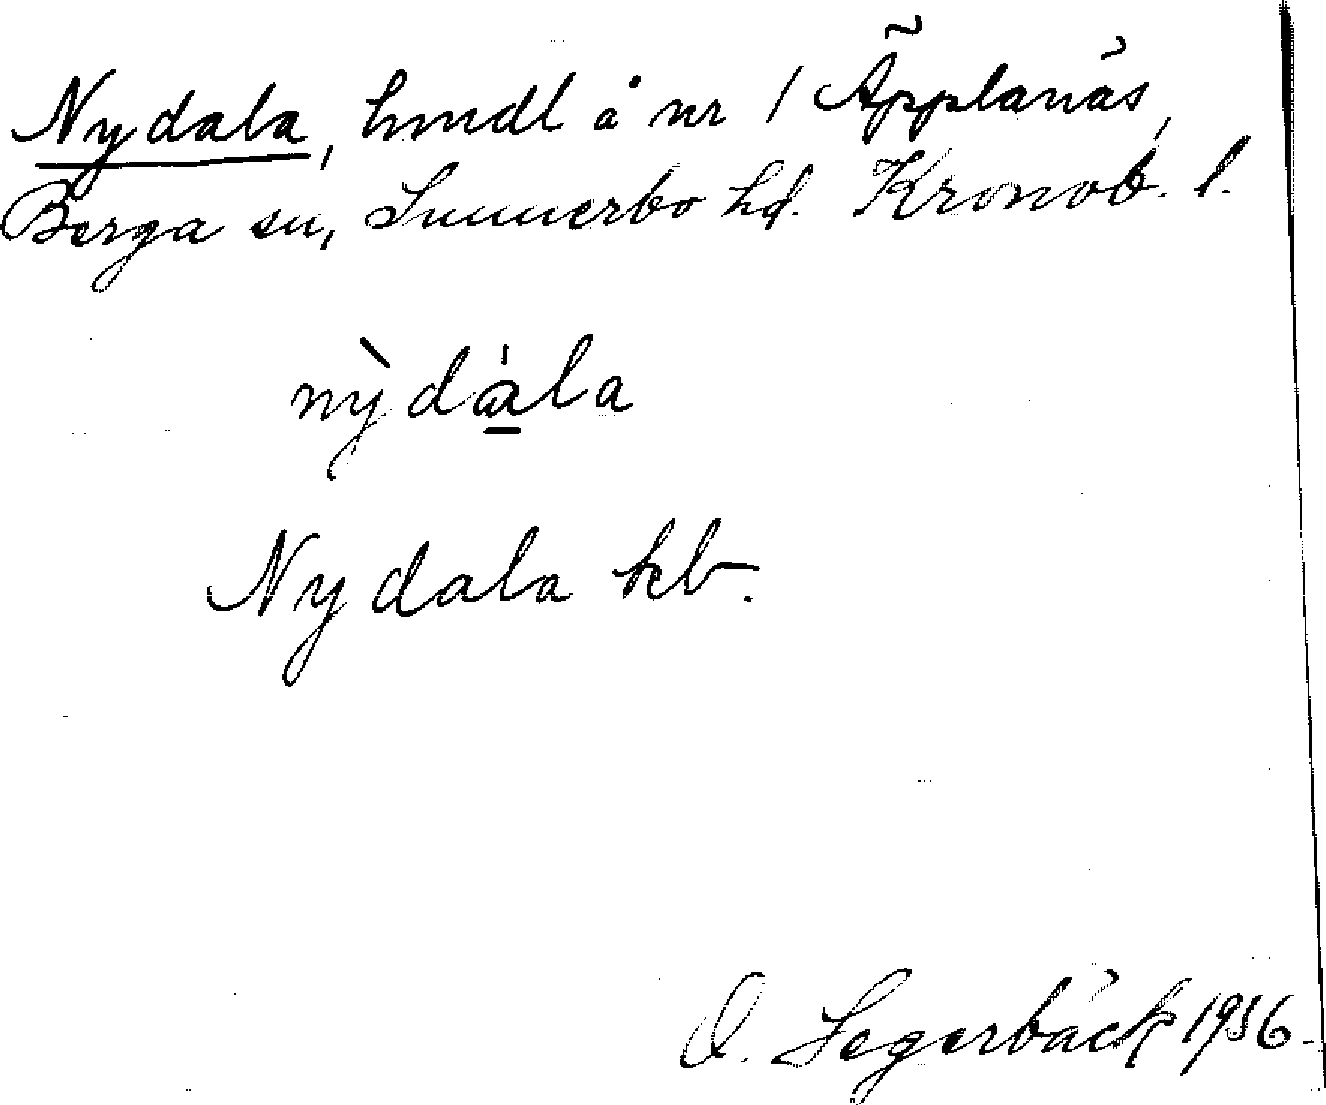 Nydala, hmdl å nr 1 Äpplanäs,
Berga sn, Sunnerbo hd. Kronob. l.
nỳdála
Nydala kb.
O. Segerbäck 1936